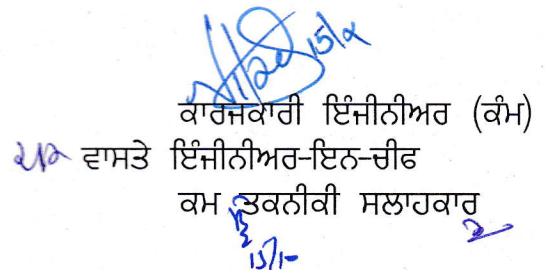 15/9
ਕਾਰਜਕਾਰੀ ਇੰਜੀਨੀਅਰ (ਕੰਮ)
ਵਾਸਤੇ ਇੰਜੀਨੀਅਰ-ਇਨ-ਚੀਫ
ਕਮ ਤਕਨੀਕੀ ਸਲਾਹਕਾਰ